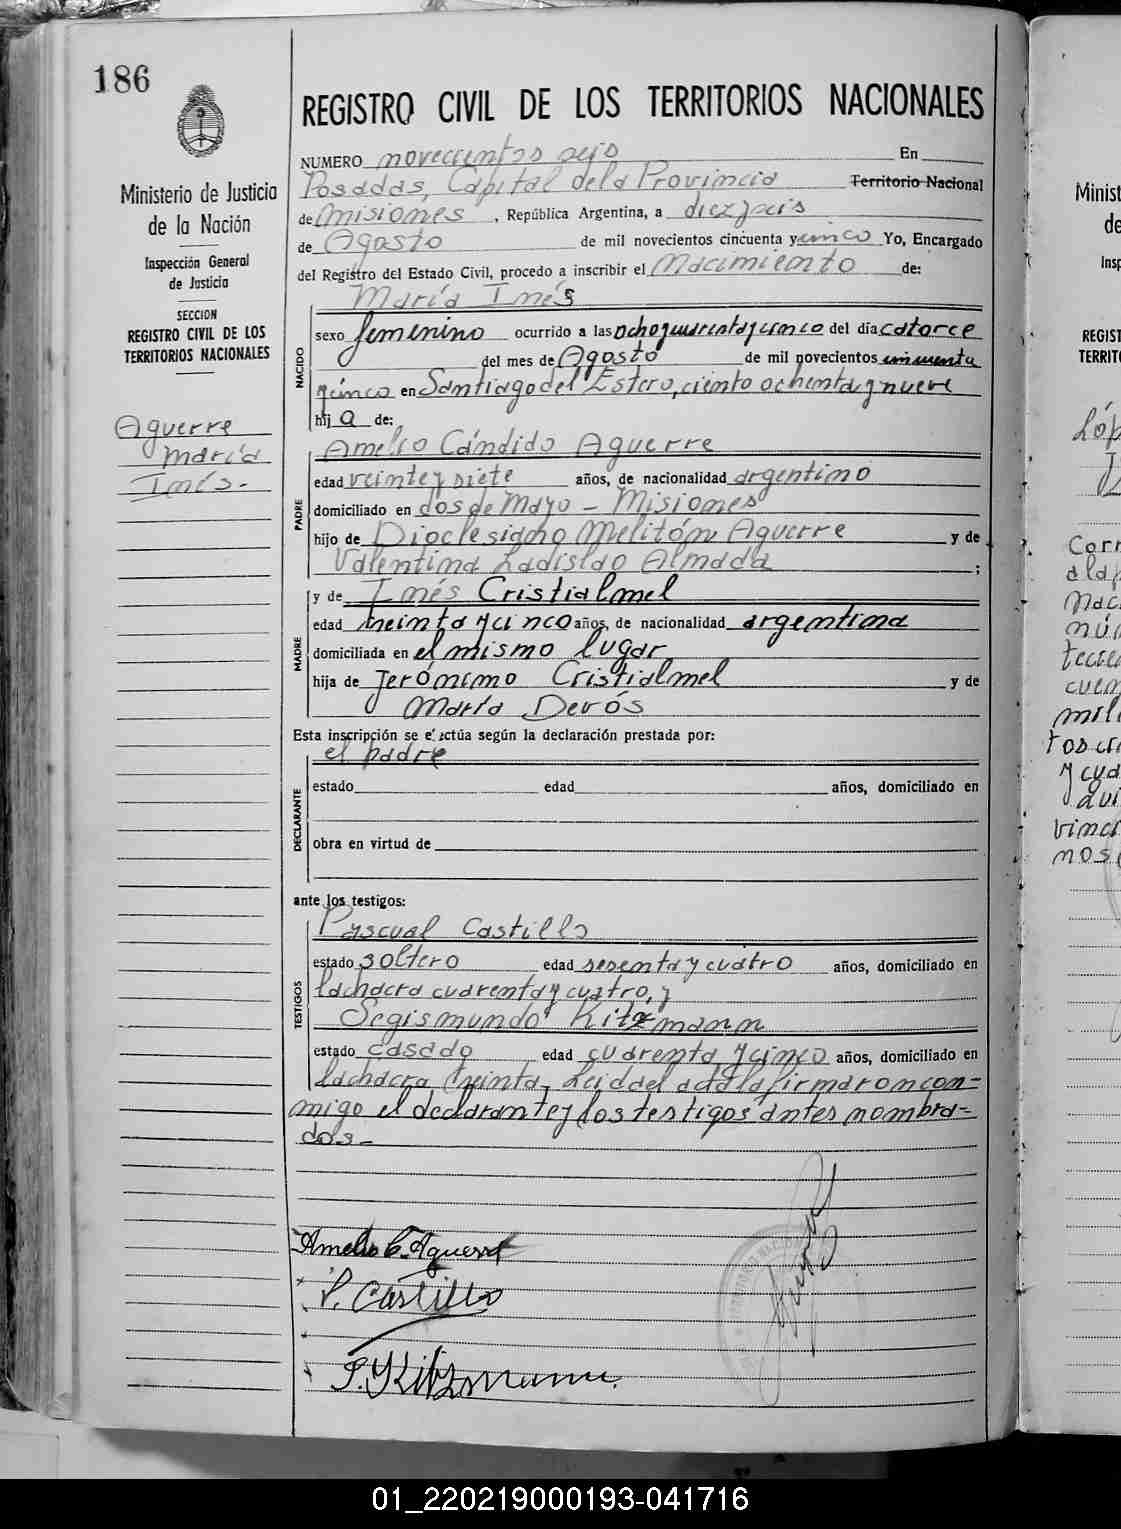 186
Ministerio de Justicia
de la Nación
Inspección General
de Justicia
SECCION
REGISTRO CIVIL DE LOS
TERRITORIOS NACIONALES
Aguerre
María
Inés.-
REGISTRO CIVIL DE LOS TERRITORIOS NACIONALES
NUMERO novecientos seis En
Posadas, Capital de la Provincia Territorio Nacional
de Misiones, República Argentina, a diez y seis
de Agosto de mil novecientos cincuenta y cinco Yo, Encargado
del Registro del Estado Civil, procedo a inscribir el Nacimiento de:
María Inés
NACIDO
sexo femenino ocurrido a las ocho y cuarenta y cinco del día catorce
del mes de Agosto de mil novecientos cincuenta
y cinco en Santiago del Estero, ciento ochenta y nueve
hij a de:
Amelio Cándido Aguerre
PADRE
edad veinte y siete años, de nacionalidad argentino
domiciliado en dos de Mayo - Misiones
hijo de Dioclesiano Melitón Aguerre y de
Valentina Ladislao Almada ;
y de Inés Cristialmel
MADRE
edad treinta y cinco años, de nacionalidad argentina
domiciliada en el mismo lugar
hija de Jerónimo Cristialmel y de
María Derós
Esta inscripción se efectúa según la declaración prestada por:
el padre
DECLARANTE
estado edad años, domiciliado en
obra en virtud de
ante los testigos:
Pascual Castillo
TESTIGOS
estado soltero edad sesenta y cuatro años, domiciliado en
la chacra cuarenta y cuatro, y
Segismundo Kitzmann
estado casado edad cuarenta y cinco años, domiciliado en
la chacra treinta, Leida el acta la firmaron con-
migo el declarante y los testigos antes nombra-
dos-
Amelio C. Aguerre
P. Castillo
S. Kitzmann.
Minist
de
Insp
REGIST
TERRITO
Lóp
Corr
ala p
Nac
nú
cuen
mil
tos
y cua
qui
vinci
nos
01_220219000193-041716